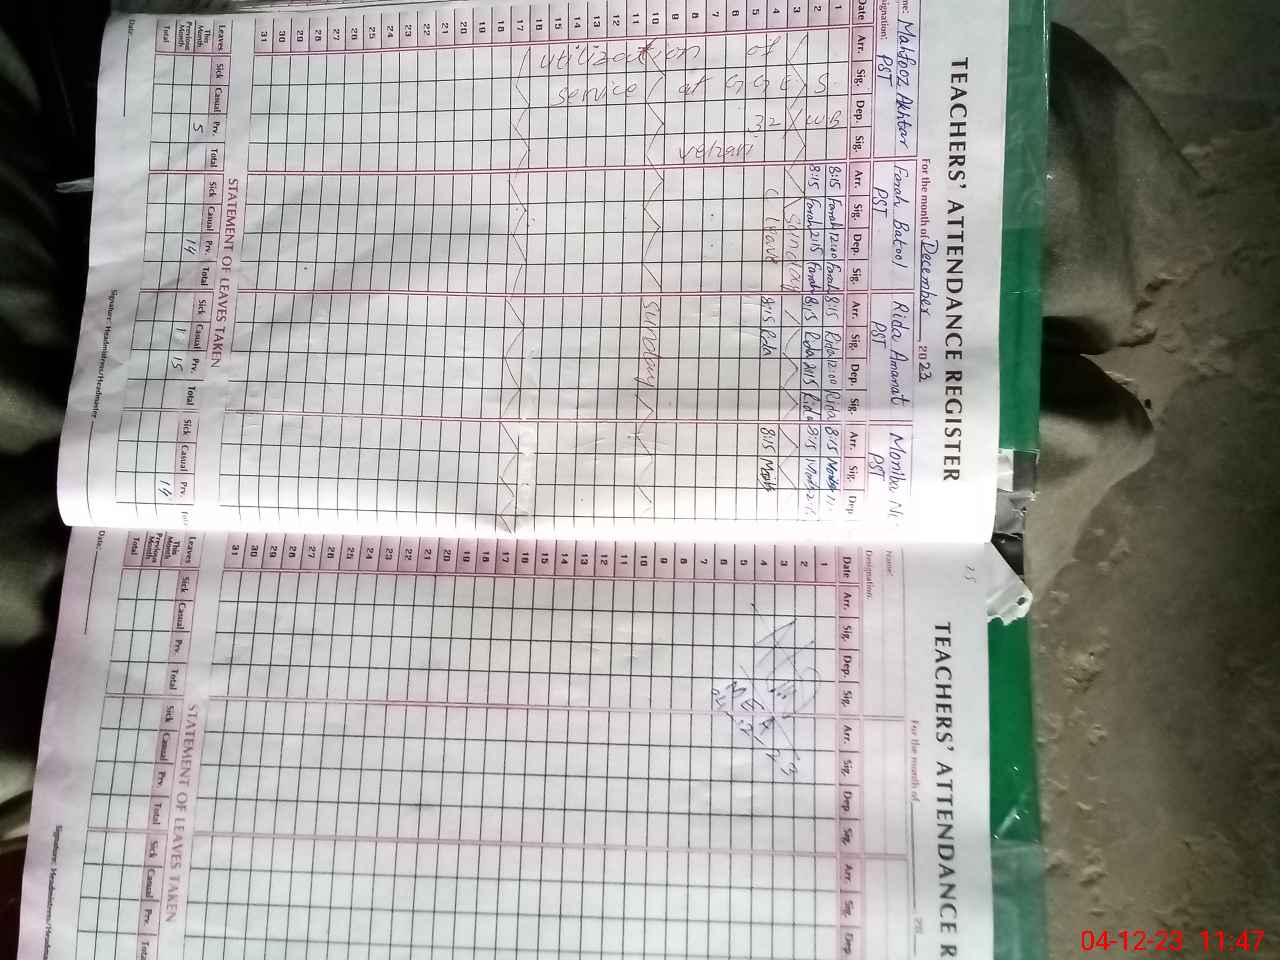 TEACHERS' ATTENDANCE REGISTER
For the month of December 2023
me: Mahfooz Akhtar Farah Batool Rida Amanat Moniba
signation: PST PST PST PST
Date Arr. Sig. Dep. Sig. Arr. Sig. Dep. Sig. Arr. Sig. Dep. Sig. Arr. Sig. Dep
1 8:15 Farah 12:00 Farah 8:15 Rida 12:00 Rida 8:15 Moniba
2 8:15 Farah 2:15 Farah 8:15 Rida 2:15 Rida 8:15 Moniba
3 Sunday
4 C Leave 8:15 Rida 8:15 Moniba
5
6
7
8
9
10 Sunday
11
12
13
14
15
16
17
18
19
20
21
22
23
24
25
26
27
28
29
30
31
utilization of
service at G G E S
32 W.B
vehari
STATEMENT OF LEAVES TAKEN
Leaves Sick Casual Prv. Total Sick Casual Prv. Total Sick Casual Prv. Total Sick Casual Prv.
This Month
Previous Month 5 14 1 15 14
Total
Date: Signature: Headmistress/Headmaster
25
TEACHERS' ATTENDANCE R
For the month of 20
Name:
Designation:
Date Arr. Sig. Dep. Sig. Arr. Sig. Dep Sig. Arr. Sig. Dep
1
2
3
4
5
6
7
8
9
10
11
12
13
14
15
16
17
18
19
20
21
22
23
24
25
26
27
28
29
30
31
STATEMENT OF LEAVES TAKEN
Leaves Sick Casual Prv. Total Sick Casual Prv. Total Sick Casual Prv. Total
This Month
Previous Month
Total
Date: Signature: Headmistress/Headma
04-12-23 11:47